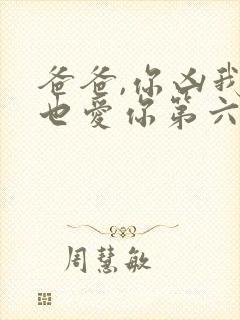 爸爸,你凶我
也爱你第六
周慧敏